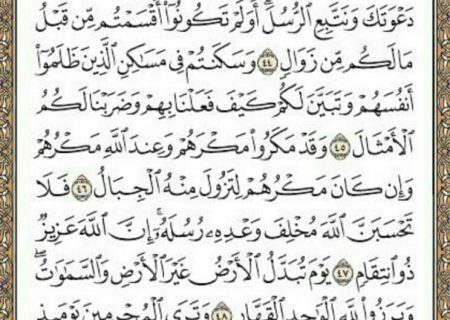 دَعْوَتَكَ وَنَتَّبِعِ الرُّسُلَ ۗ أَوَلَمْ تَكُونُوٓا۟ أَقْسَمْتُم مِّن قَبْلُ
مَا لَكُم مِّن زَوَالٍ ٤٤ وَسَكَنتُمْ فِى مَسَـٰكِنِ الَّذِينَ ظَلَمُوٓا۟
أَنفُسَهُمْ وَتَبَيَّنَ لَكُمْ كَيْفَ فَعَلْنَا بِهِمْ وَضَرَبْنَا لَكُمُ
الْأَمْثَالَ ٤٥ وَقَدْ مَكَرُوا۟ مَكْرَهُمْ وَعِندَ اللَّهِ مَكْرُهُمْ
وَإِن كَانَ مَكْرُهُمْ لِتَزُولَ مِنْهُ الْجِبَالُ ٤٦ فَلَا
تَحْسَبَنَّ اللَّهَ مُخْلِفَ وَعْدِهِۦ رُسُلَهُۥٓ ۗ إِنَّ اللَّهَ عَزِيزٌ
ذُو انتِقَامٍ ٤٧ يَوْمَ تُبَدَّلُ الْأَرْضُ غَيْرَ الْأَرْضِ وَالسَّمَـٰوَٰتُ ۖ
وَبَرَزُوا۟ لِلَّهِ الْوَٰحِدِ الْقَهَّارِ ٤٨ وَتَرَى الْمُجْرِمِينَ يَوْمَئِذٍ